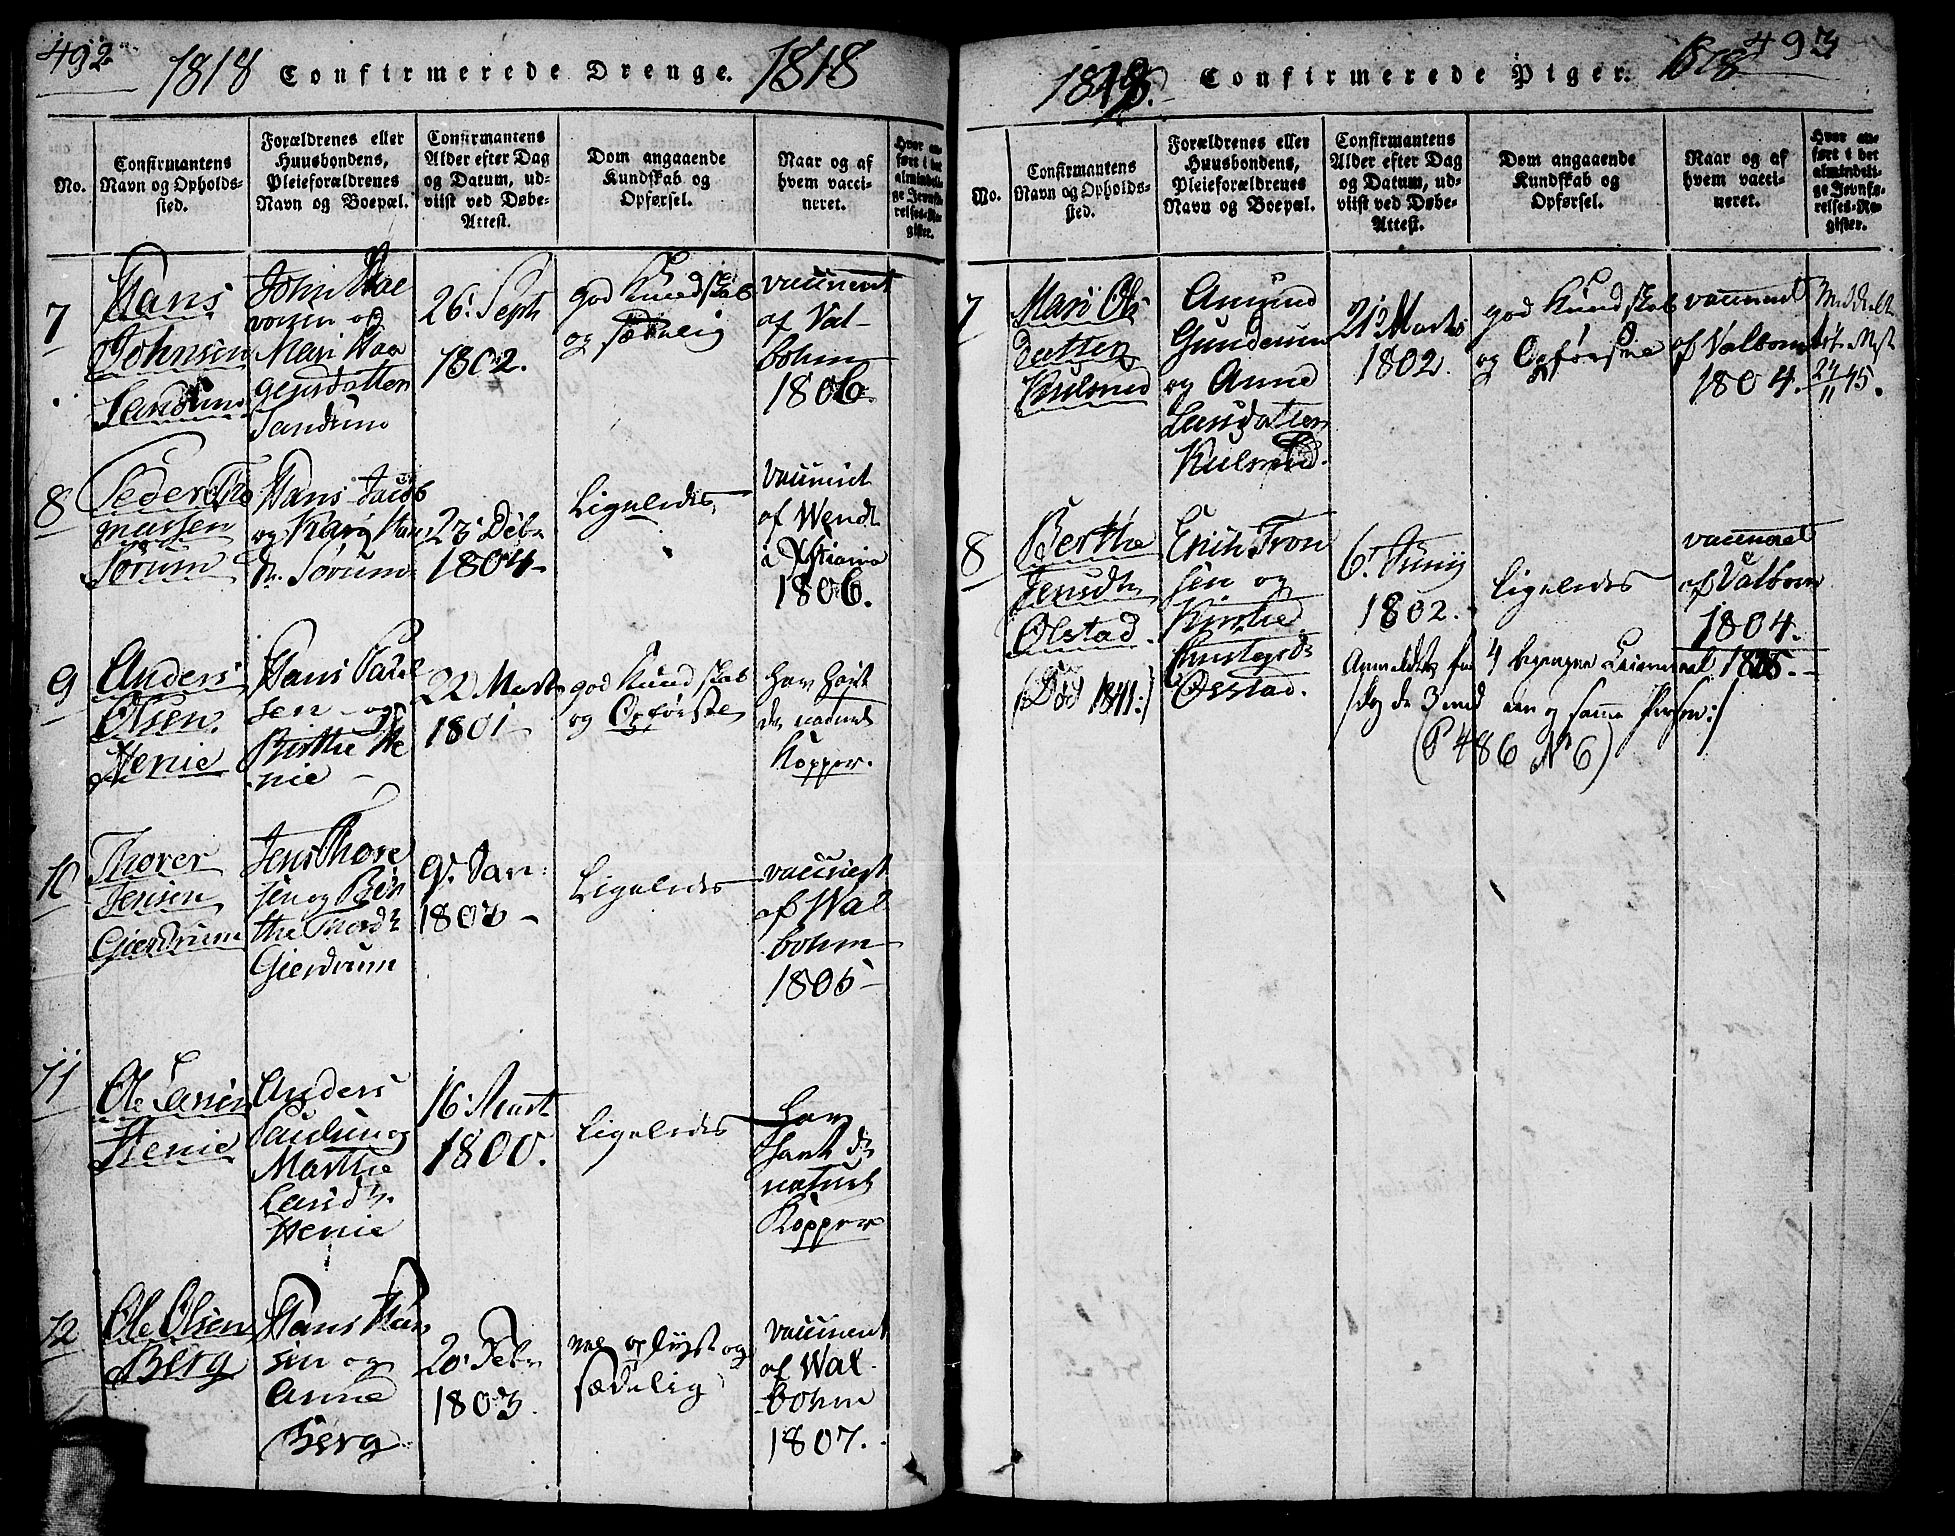 492
1818 Confirmerede Drenge. 1818
No.
Confirmantens
Navn og Opholds-
sted.
Forældrenes eller
Huusbondens,
Pleieforældrenes
Navn og Boepæl.
Confirmantens
Alder efter Dag
og Datum, ud-
viist ved Døbe-
Attest.
Dom angaaende
Kundskab og
Opførsel.
Naar og af
hvem vacci-
neret.
Hvor an-
ført i det
almindeli-
ge Jevnfø-
relses-Re-
gister.
7
Hans
Johnsen
Sandum
John Haa
vorsen og
Mari Haa
gensdatter
Sandum
26: Sept
1802.
god Kundskab
og sædelig
vaccineret
af Val-
bohm
1806.
8
Peder Tho
massen
Sørum
Hans Jacob
og Kari Han
dr. Sørum
23 Debr
1804
Ligeledes
vaccineret
af Wendt
i Xstiania
1806.
9
Anders
Olsen
Henie
Hans Paul
sen og
Berthe He
nie
22 Marts
1801
god Kundskab
og Opførsel
har havt
de naturl
Kopper.
10
Thorer
Jensen
Gierdrum
Jens Thore
sen og Ber
the
Gierdrum
9: Jan:
1803
Ligeledes
vaccineret
af Wal
bohm
1805
11
Ole
Henie
Anders
Paulsen og
Marthe
Larsdr.
Henie
16: Marts
1800.
Ligeledes
har
havt de
naturl
Kopper
12
Ole Olsen
Berg
Hans Han
sen og
Anne
Berg
20: Febr
1803.
vel oplyst og
sædelig
vaccineret
af Wal-
bohm
1807.
493
1818. Confirmerede Piger. 1818
No.
Confirmantens
Navn og Opholds-
sted.
Forældrenes eller
Huusbondens,
Pleieforældrenes
Navn og Boepæl.
Confirmantens
Alder efter Dag
og Datum, ud-
viist ved Døbe-
Attest.
Dom angaaende
Kundskab og
Opførsel.
Naar og af
hvem vacci-
neret.
Hvor an-
ført i det
almindeli-
ge Jevnfø-
relses-Re-
gister.
7
Mari Ols
datter
Kulsrud
Amund
Gundersen
og Anne
Larsdatter
Kulsrud.
21: Marts
1802.
god Kundskab
og Opførsel
vaccineret
af Valbom
1804.
Meddelt
Att.
24/11 45.
8
Berthe
Jensdtr
Ølstad.
(Død 1841:)
Erich Tron
sen og
Kirstie
Christophdr
Ølstad.
6. Junij
1802.
Ligeledes
vaccineret
af Valbom
1804.
Anmeldtes for 4 begangne Leiermaal 1825.
/dog de 3 med een og samme Person:/
(P 486 N 6)